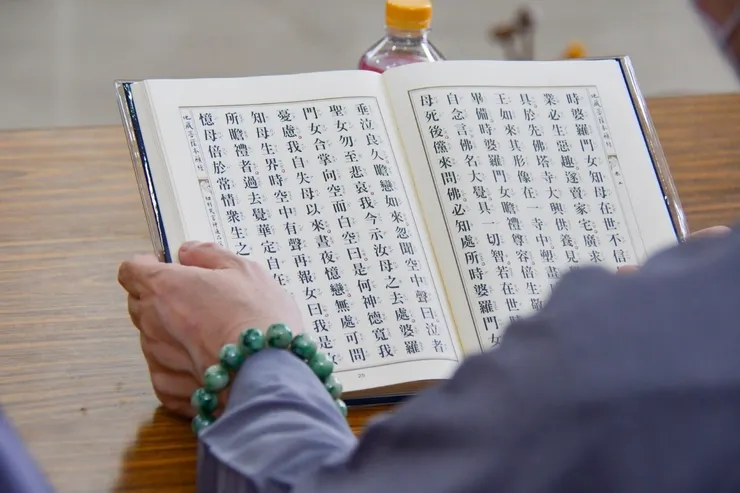 地藏菩薩本願經 卷上
時婆羅門女知母在世不信
業必生惡趣遂賣家宅廣求
具於先佛塔寺大興供養見
王如來其形像在一寺中塑畫
畢備時婆羅門女瞻禮尊容倍生
自念言佛名大覺具一切智若在世
母死後儻來問佛必知處所時婆羅門
垂泣良久瞻戀如來忽聞空中聲曰泣者
聖女勿至悲哀我今示汝母之去處婆羅
門女合掌向空而白空曰是何神德寬我
憂慮我自失母以來晝夜憶戀無處可問
知母生界時空中有聲再報女曰我是
所瞻禮者過去覺華定自在
憶母倍於常情衆生之
地藏菩薩本願經
25